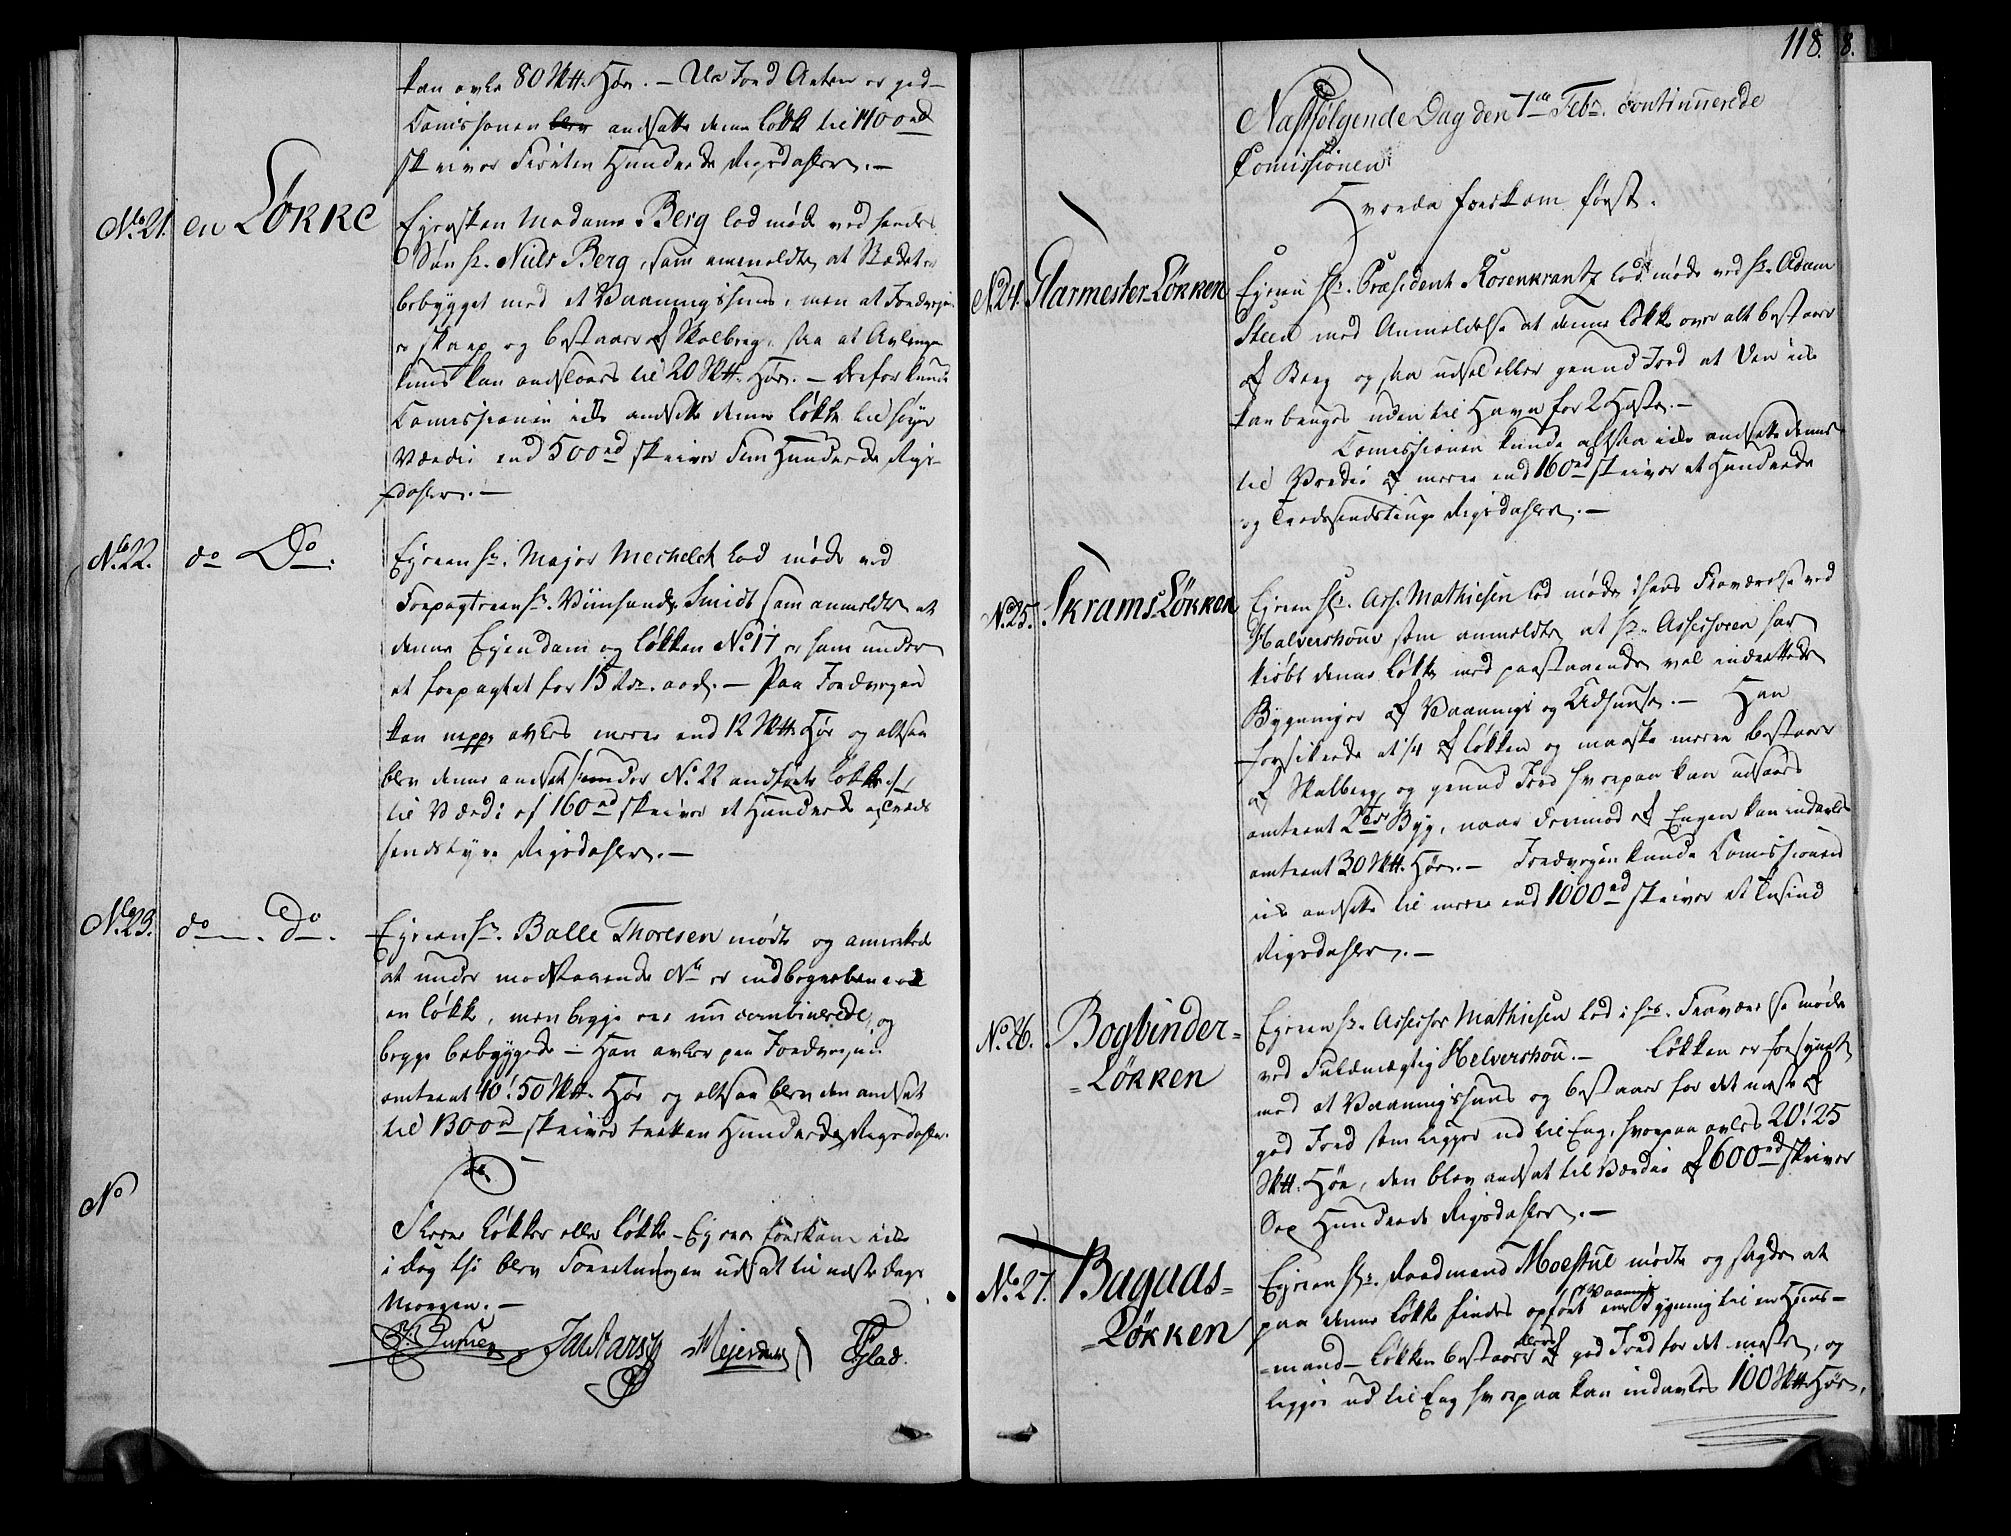 kan avles 80 Sktt. Høe. — Da Jord Arten er god
Comissionen blev andsatte denne Løkke til 1400 rd
skriver Fiorten Hundrede Rigsdaler. —
No. 21. en Løkke
Eyersken Madame Berg lod møde ved hendes
Søn Hr. Niels Berg, som anmeldte, at Stædet er
bebygget med et Vaaningshuus, men at Jordvejen
er skarp og bestaaer af Skalberg, saa at Avlingen
kuns kan andslaaes til 20 Sktt. Høe. — Derfor kunde
Comissionen icke andsette denne Løkke til højer
Værdie end 500 rd skriver Fem Hundrede Rigs-
daler. —
No. 22. do Do:
Eyeren Hr. Major Mechelet lod møde ved
Forpagteren Hr. Smidt som anmeldte at
denne Eyendom og Løkken No. 17 er sam under
et forpagtet for 15 Rdr. aarl. — Paa Jordvejen
kan neppe avles meere end 12 Sktt. Høe og altsaa
blev denne andsat under No. 22 andførte Løkke
til Værdi af 160 rd skriver et Hundrede og Treds
sindstyve Rigsdaler. —
No. 23. do — Do.
Eyeren Hr. Balle Thoresen mødte og anmerkede
at under modstaaende No. er indbegreben
en Løkke, men begge ere nu combinerede, og
begge bebyggede — Han avler paa Jordvejene
omtrent 40 à 50 Sktt. Høe og altsaa blev den andsat
til 1300 rd skriver tretten Hundrede Rigsdaler.
No
Fleere Løkker eller Løkke-Eyere fremkom icke
i Dag thi blev Forretningen udsat til næste Dags
Morgen. —
Meyer Glad.
118. 8.
Næstfølgende Dag den 7de Febr. continuerede
Comissionen
Hvorda fremkom først.
No. 24. Glarmester-Løkken
Eyeren Hr. Præsident Rosenkrantz lod møde ved Hr. Adam
Steen med Anmeldelse at denne Løkke over alt bestaaer
af Berg og saa udsel eller grund Jord at den icke
kan bruges uden til Havn for 2 Heste. —
Comissionen kunde altsaa icke andsette denne
til Værdie af meere end 160 rd skriver et Hundrede
og Tredssindstyve Rigsdaler. —
No. 25. Skrams Løkken
Eyeren Hr. Ass. Mathiesen lod møde i hans Fraværelse ved
Halvershoue som anmeldte, at Hr. Assessoren har
kiøbt denne Løkke med paastaaende vel indrettede
Bygninger af Vaanings og Udhuuse. — Han
forsikrede at 1/4 af Løkken og maaske meere bestaaer
af Skalberg og grund Jord hvorpaa kan udsaaes
omtrent 2 Tdr Byg, naar derimod af Engen kan indavles
omtrent 30 Sktt. Høe. — Jordvejen kunde Comissionen
icke andsette til meere end 1000 rd skriver et Tusind
Rigsdaler. —
No. 26. Bogbinder-
-Løkken
Eyeren Hr. Assessor Mathiesen lod i hs. Fraværelse møde
ved Fuldmægtig Helvershou. — Løkken er forsynet
med et Vaaningshuus og bestaaer for det meste af
god Jord som ligger ud til Eng, hvorpaa avles 20 à 25
Sktt. Høe, den blev andsat til Værdie af 600 rd skriver
Sex Hundrede Rigsdaler. —
No. 27. Bagaas-
-Løkken
Eyeren Hr. Raadmand Moestue mødte og sagde at
paa denne Løkke findes opført en Vaanings Bygning til en Huus-
-mand — Løkken bestaaer af god Jord for det meste, og
ligger ud til Eng hvorpaa kan indavles 100 Sktt. Høe,